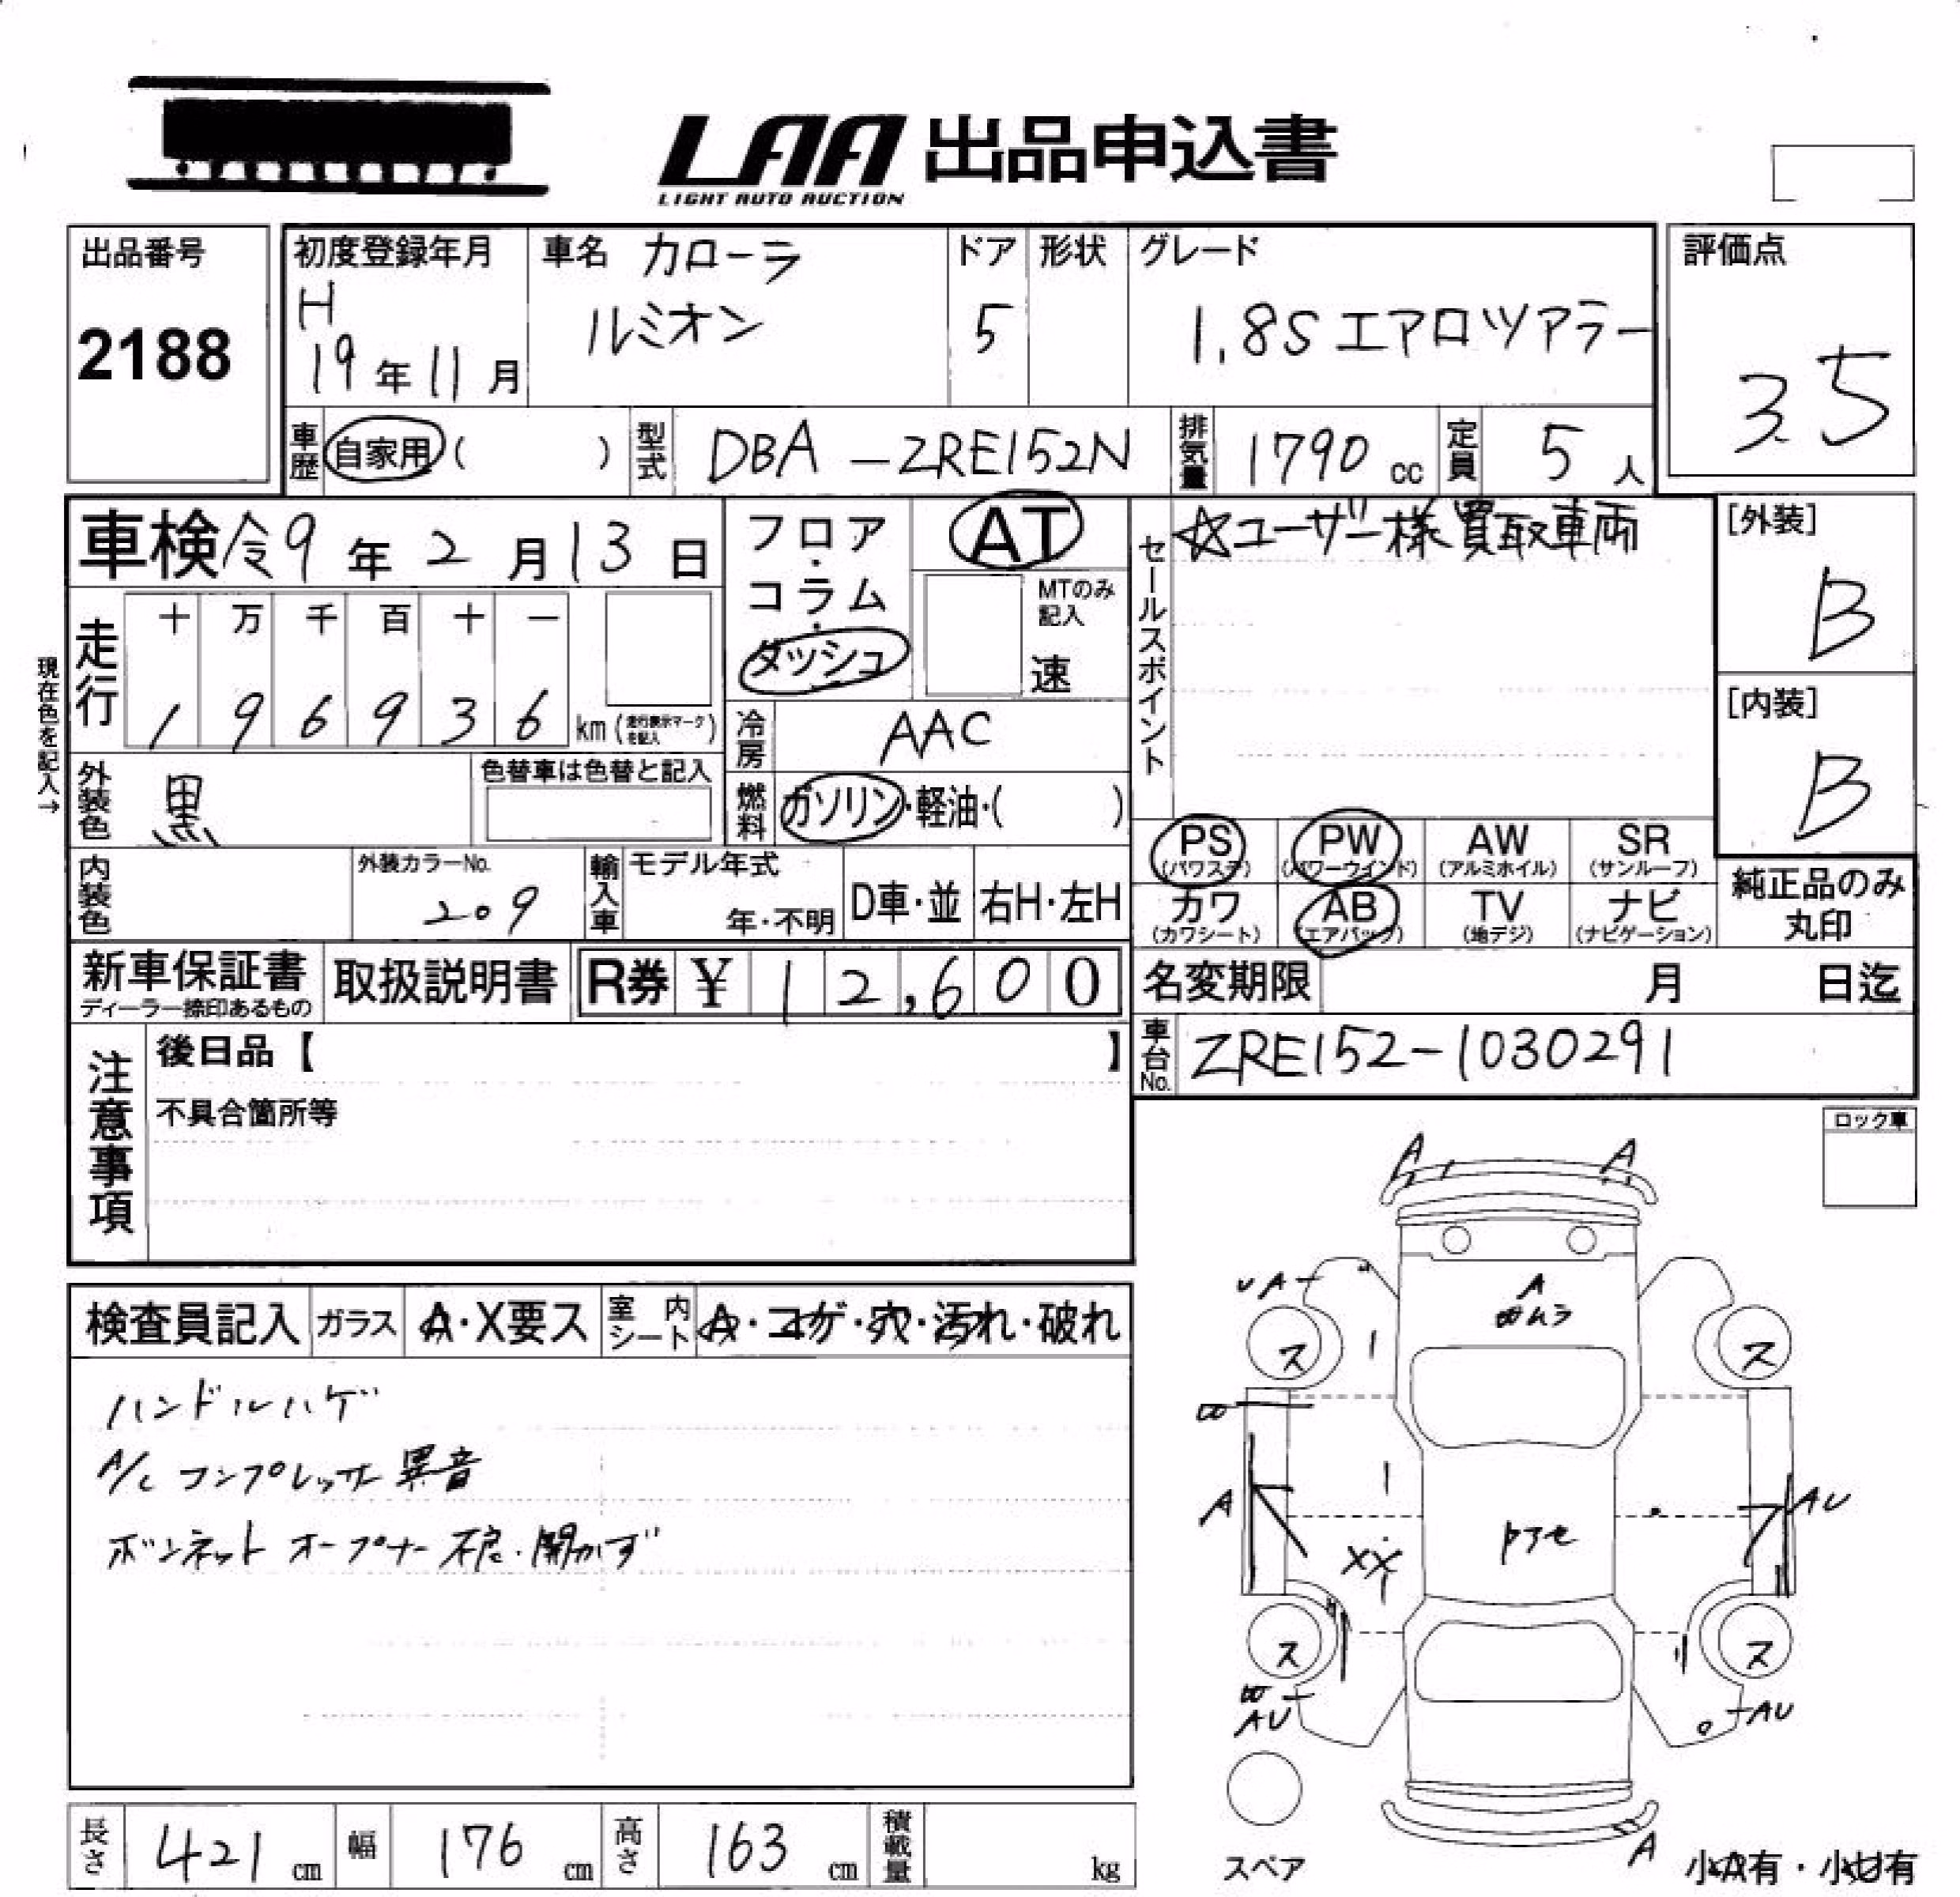 LAA 出品申込書
LIGHT AUTO AUCTION
出品番号
2188
初度登録年月
H
19年11月
車名 カローラ
ルミオン
ドア
5
形状
グレード
1.8S エアロツアラー
評価点
3.5
車歴 自家用 ( )
型式 DBA-ZRE152N
排気量 1790 cc
定員 5人
車検 令9年2月13日
フロア・
コラム・
ダッシュ
AT
MTのみ
記入
速
セールスポイント
☆ユーザー様買取車両
[外装]
B
[内装]
B
現在色を記入→
走行
十 万 千 百 十 一
1 9 6 9 3 6 km (走行表示マークを記入)
冷房 AAC
外装色 黒
色替車は色替と記入
燃料 ガソリン・軽油・( )
PS
(パワステ)
PW
(パワーウインド)
AW
(アルミホイル)
SR
(サンルーフ)
内装色
外装カラーNo.
209
輸入車
モデル年式
年・不明
D車・並
右H・左H
カワ
(カワシート)
AB
(エアバッグ)
TV
(地デジ)
ナビ
(ナビゲーション)
純正品のみ
丸印
新車保証書
ディーラー捺印あるもの
取扱説明書
R券 ¥ 12,600
名変期限 月 日迄
注意事項
後日品【 】
車台No. ZRE152-1030291
不具合箇所等
ロック車
検査員記入 ガラス A・X要ス 室内シート A・コゲ・穴・汚れ・破れ
ハンドルハゲ
A/C コンプレッサー異音
ボンネット オープナー不良・開かず
A A
UA
A
ムラ
ス ス
A
AU
XX
ス ス
AU
AU
A
スペア
小A有・小U有
長さ 421 cm
幅 176 cm
高さ 163 cm
積載量 kg